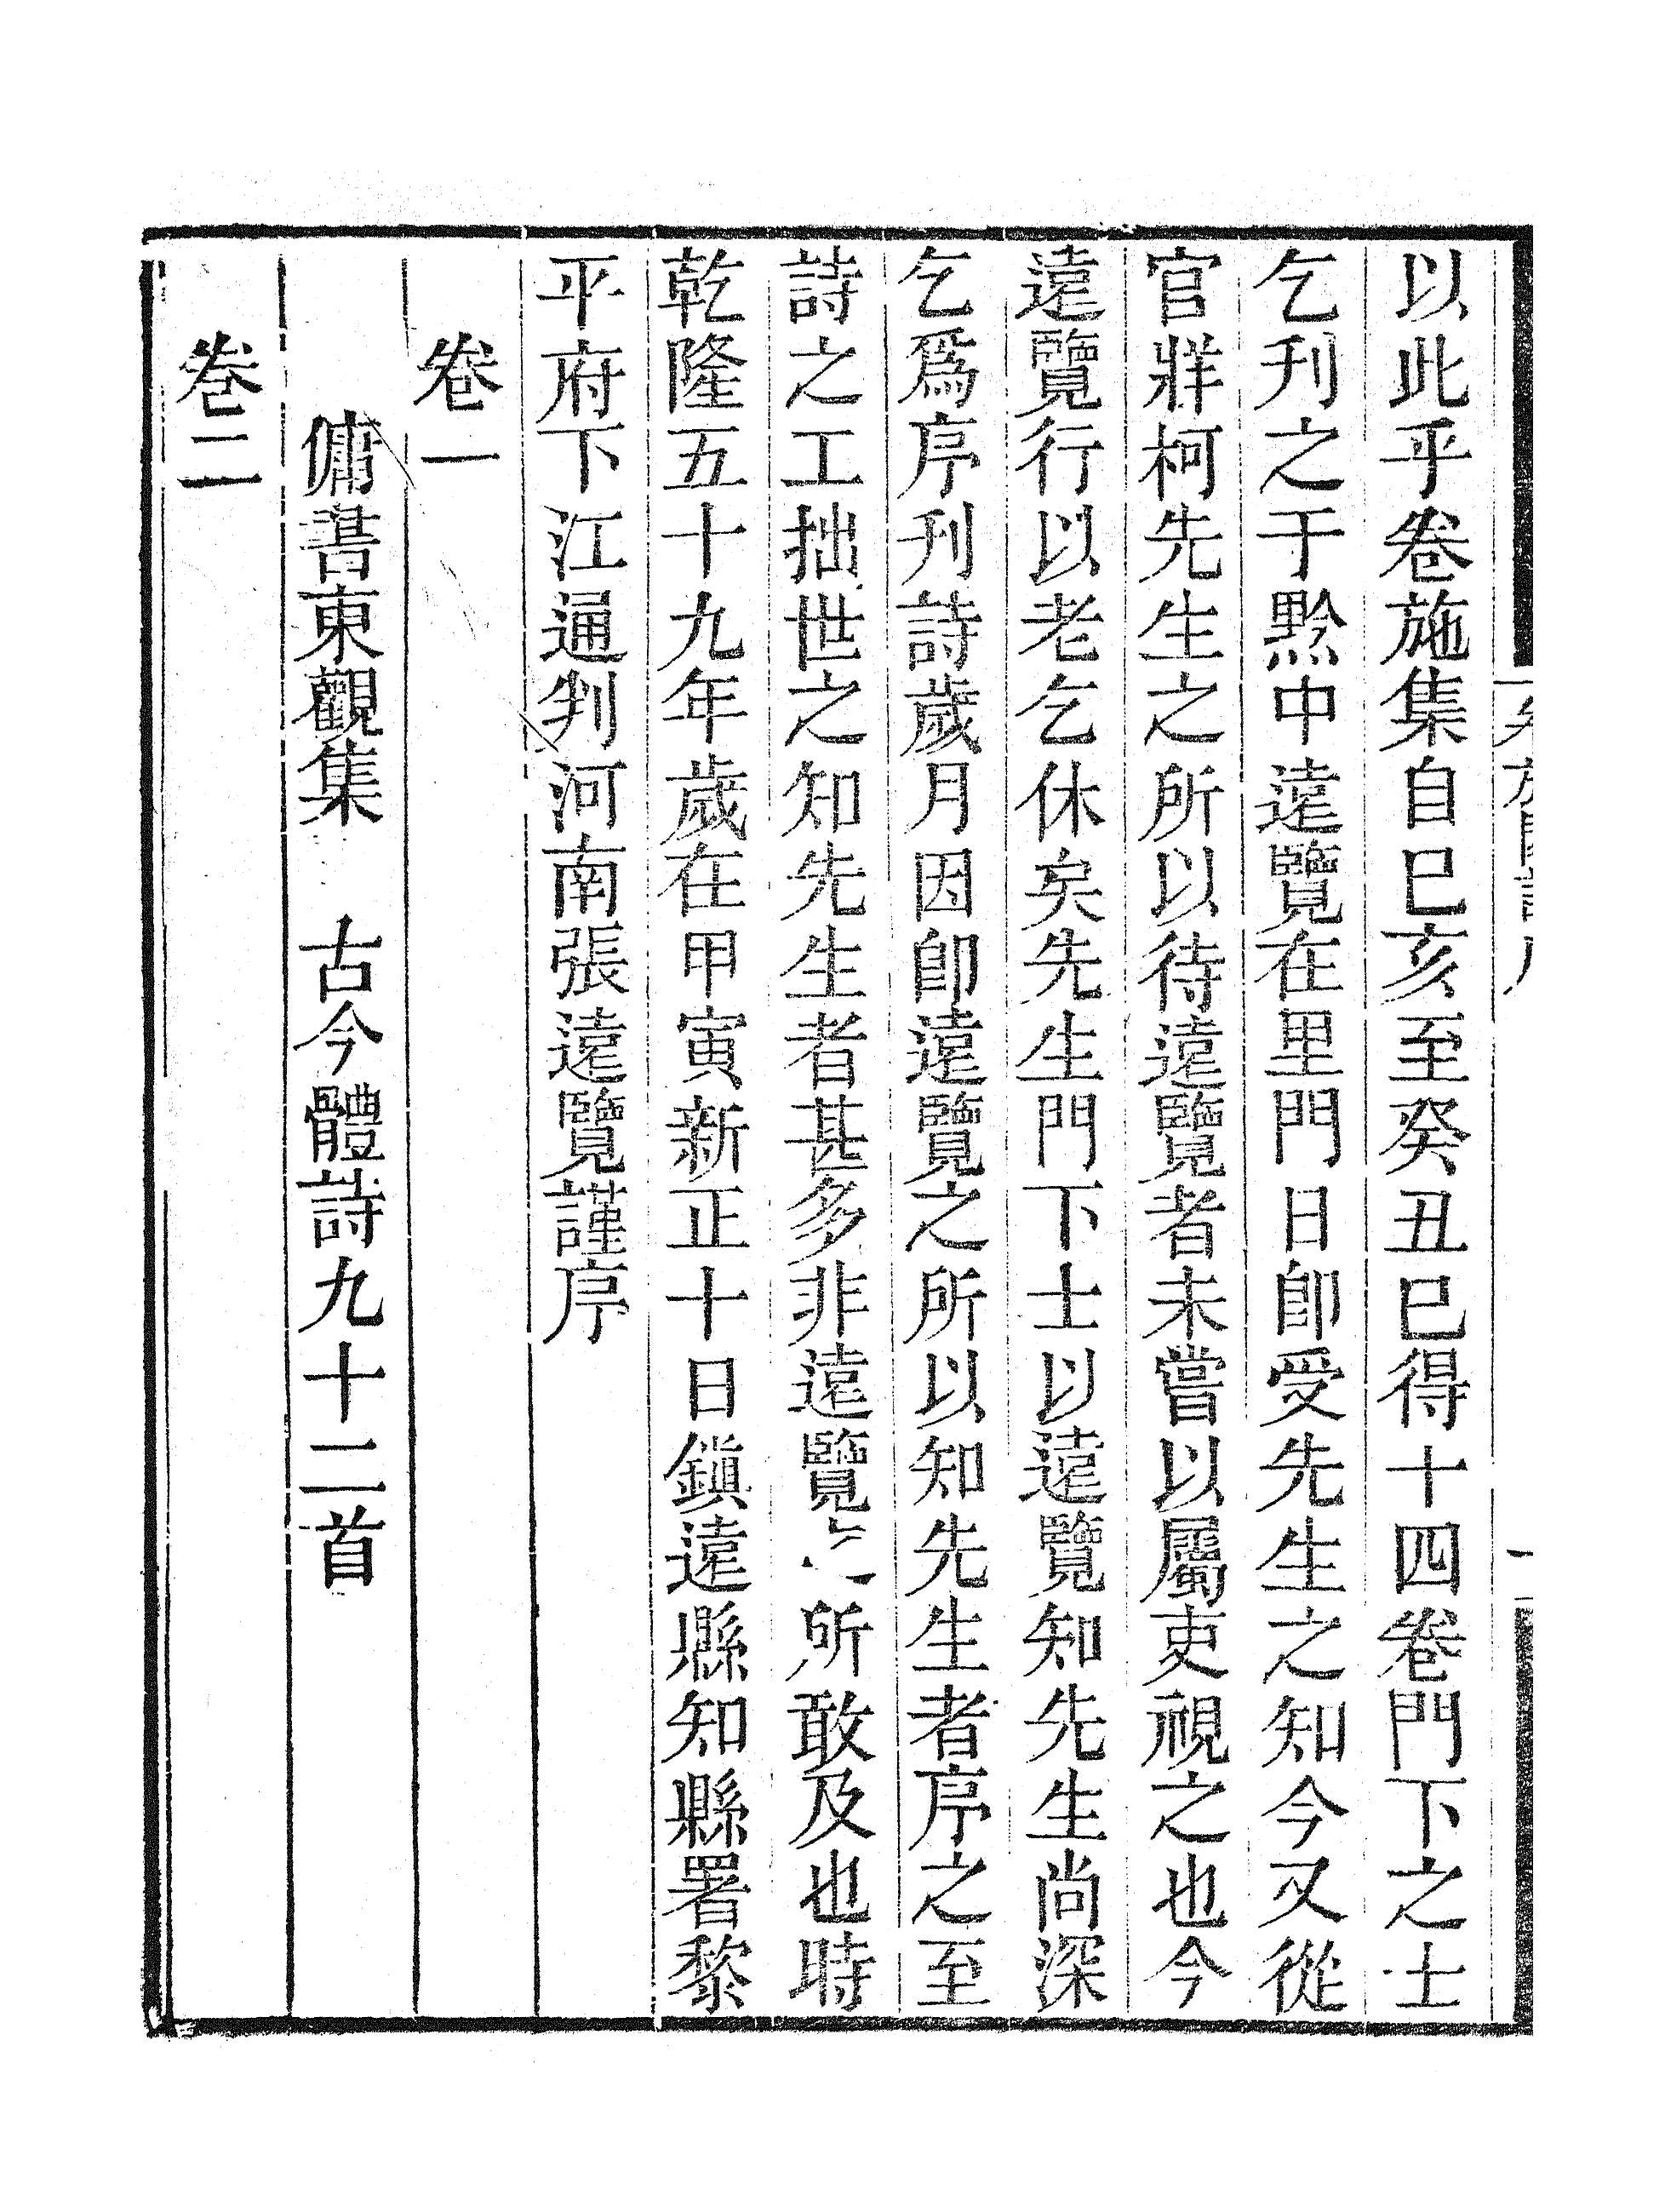 以此乎卷施集自巳亥至癸丑巳得十四卷門下之士
乞刋之于黔中遠覽在里門日卽受先生之知今又從
官牂柯先生之所以待遠覽者未嘗以屬吏視之也今
遠覽行以老乞休矣先生門下士以遠覽知先生尚深
乞爲序刋詩歲月因卽遠覽之所以知先生者序之至
詩之工拙世之知先生者甚多非遠覽之所敢及也時
乾隆五十九年歲在甲寅新正十日鎭遠縣知縣署黎
平府下江通判河南張遠覽謹序
卷一
傭書東觀集　古今體詩九十二首
卷二